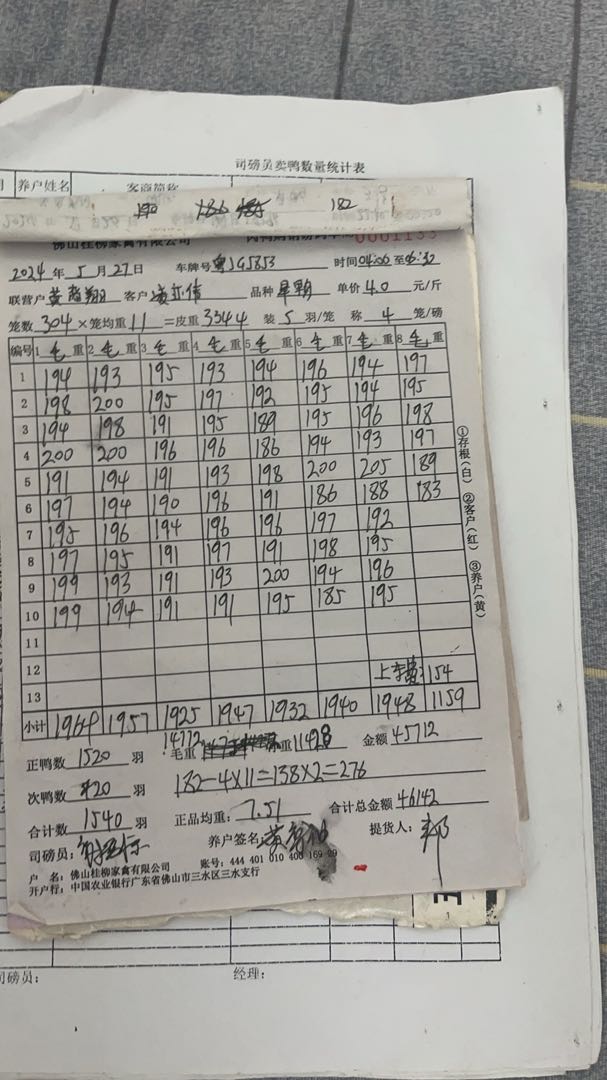 司磅员卖鸭数量统计表
养户姓名 客商简称
190 186 185 182
佛山桂柳家禽有限公司 0001133
2024 年 5 月 27 日 车牌号 粤JG5853 时间 04:06 至 06:30
联营户 黄 翔 客户 品种 单价 4.0 元/斤
笼数 304 ×笼均重 11 =皮重 3344 装 5 羽/笼 称 4 笼/磅
编号 1 毛 重 2 毛 重 3 毛 重 4 毛 重 5 毛 重 6 毛 重 7 毛 重 8 毛 重
1 194 193 195 193 194 196 194 197
2 198 200 195 197 192 195 194 195
3 194 198 191 195 189 195 196 198
4 200 200 196 196 186 194 193 197
5 191 194 191 193 198 200 205 189
6 197 194 190 196 191 186 188 183
7 195 196 194 196 196 197 192
8 197 195 191 197 191 198 195
9 199 193 191 193 200 194 196
10 199 194 191 191 195 185 195
11
12 上车费:154
13
小计 1964 1957 1925 1947 1932 1940 1948 1159
①存根(白) ②客户(红) ③养户(黄)
正鸭数 1520 羽 毛重 14772 重 11428 金额 45712
次鸭数 20 羽 182-4×11=138×2=276
合计数 1540 羽 正品均重: 7.51 合计总金额 46142
司磅员: 养户签名: 提货人:
户 名: 佛山桂柳家禽有限公司 账号: 444 401 010 400 169 29
开户行: 中国农业银行广东省佛山市三水区三水支行
司磅员: 经理: